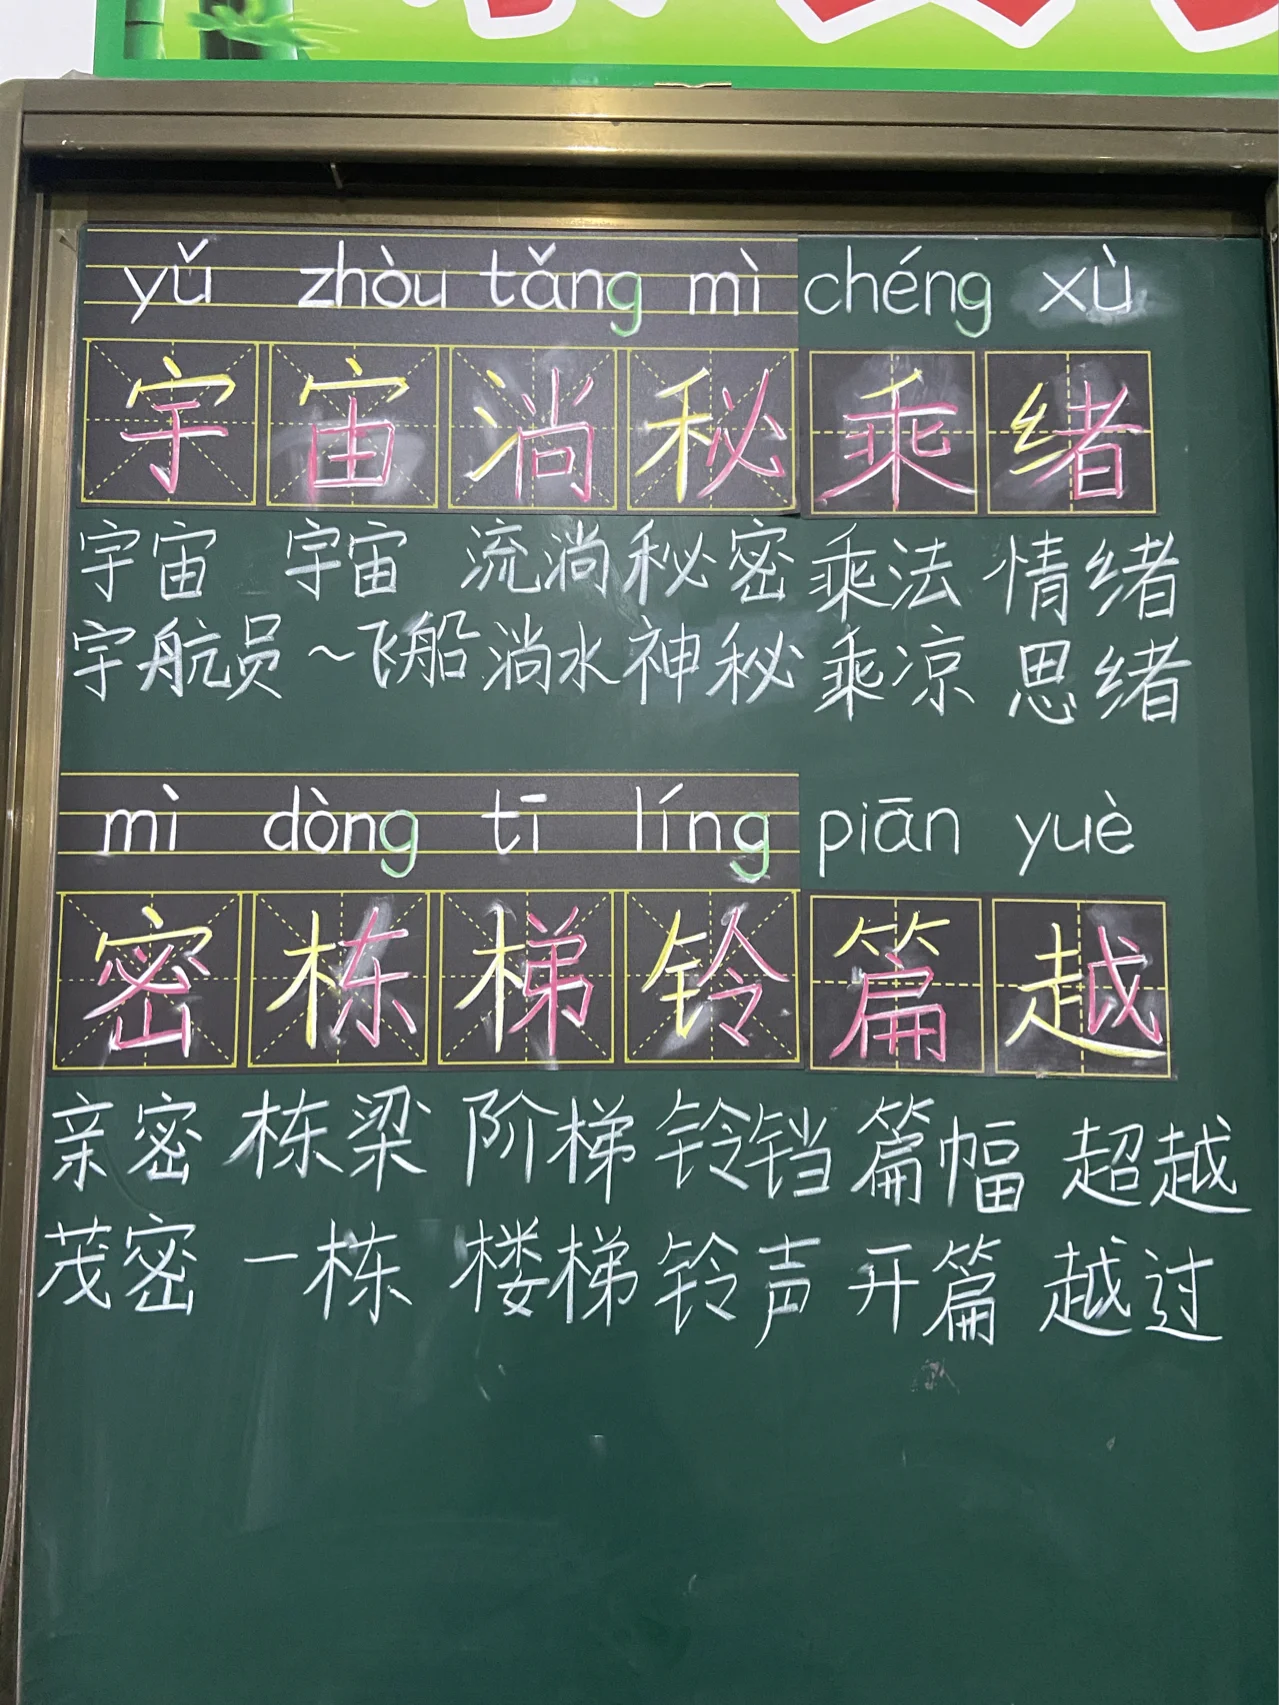 yǔ zhòu tǎng mì chéng xù
宇 宙 淌 秘 乘 绪
宇宙 宇宙 流淌 秘密 乘法 情绪
宇航员 ~飞船 淌水 神秘 乘凉 思绪
mì dòng tī líng piān yuè
密 栋 梯 铃 篇 越
亲密 栋梁 阶梯 铃铛 篇幅 超越
茂密 一栋 楼梯 铃声 开篇 越过